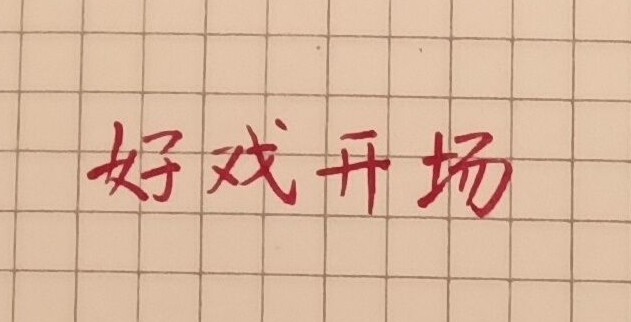 好戏开场